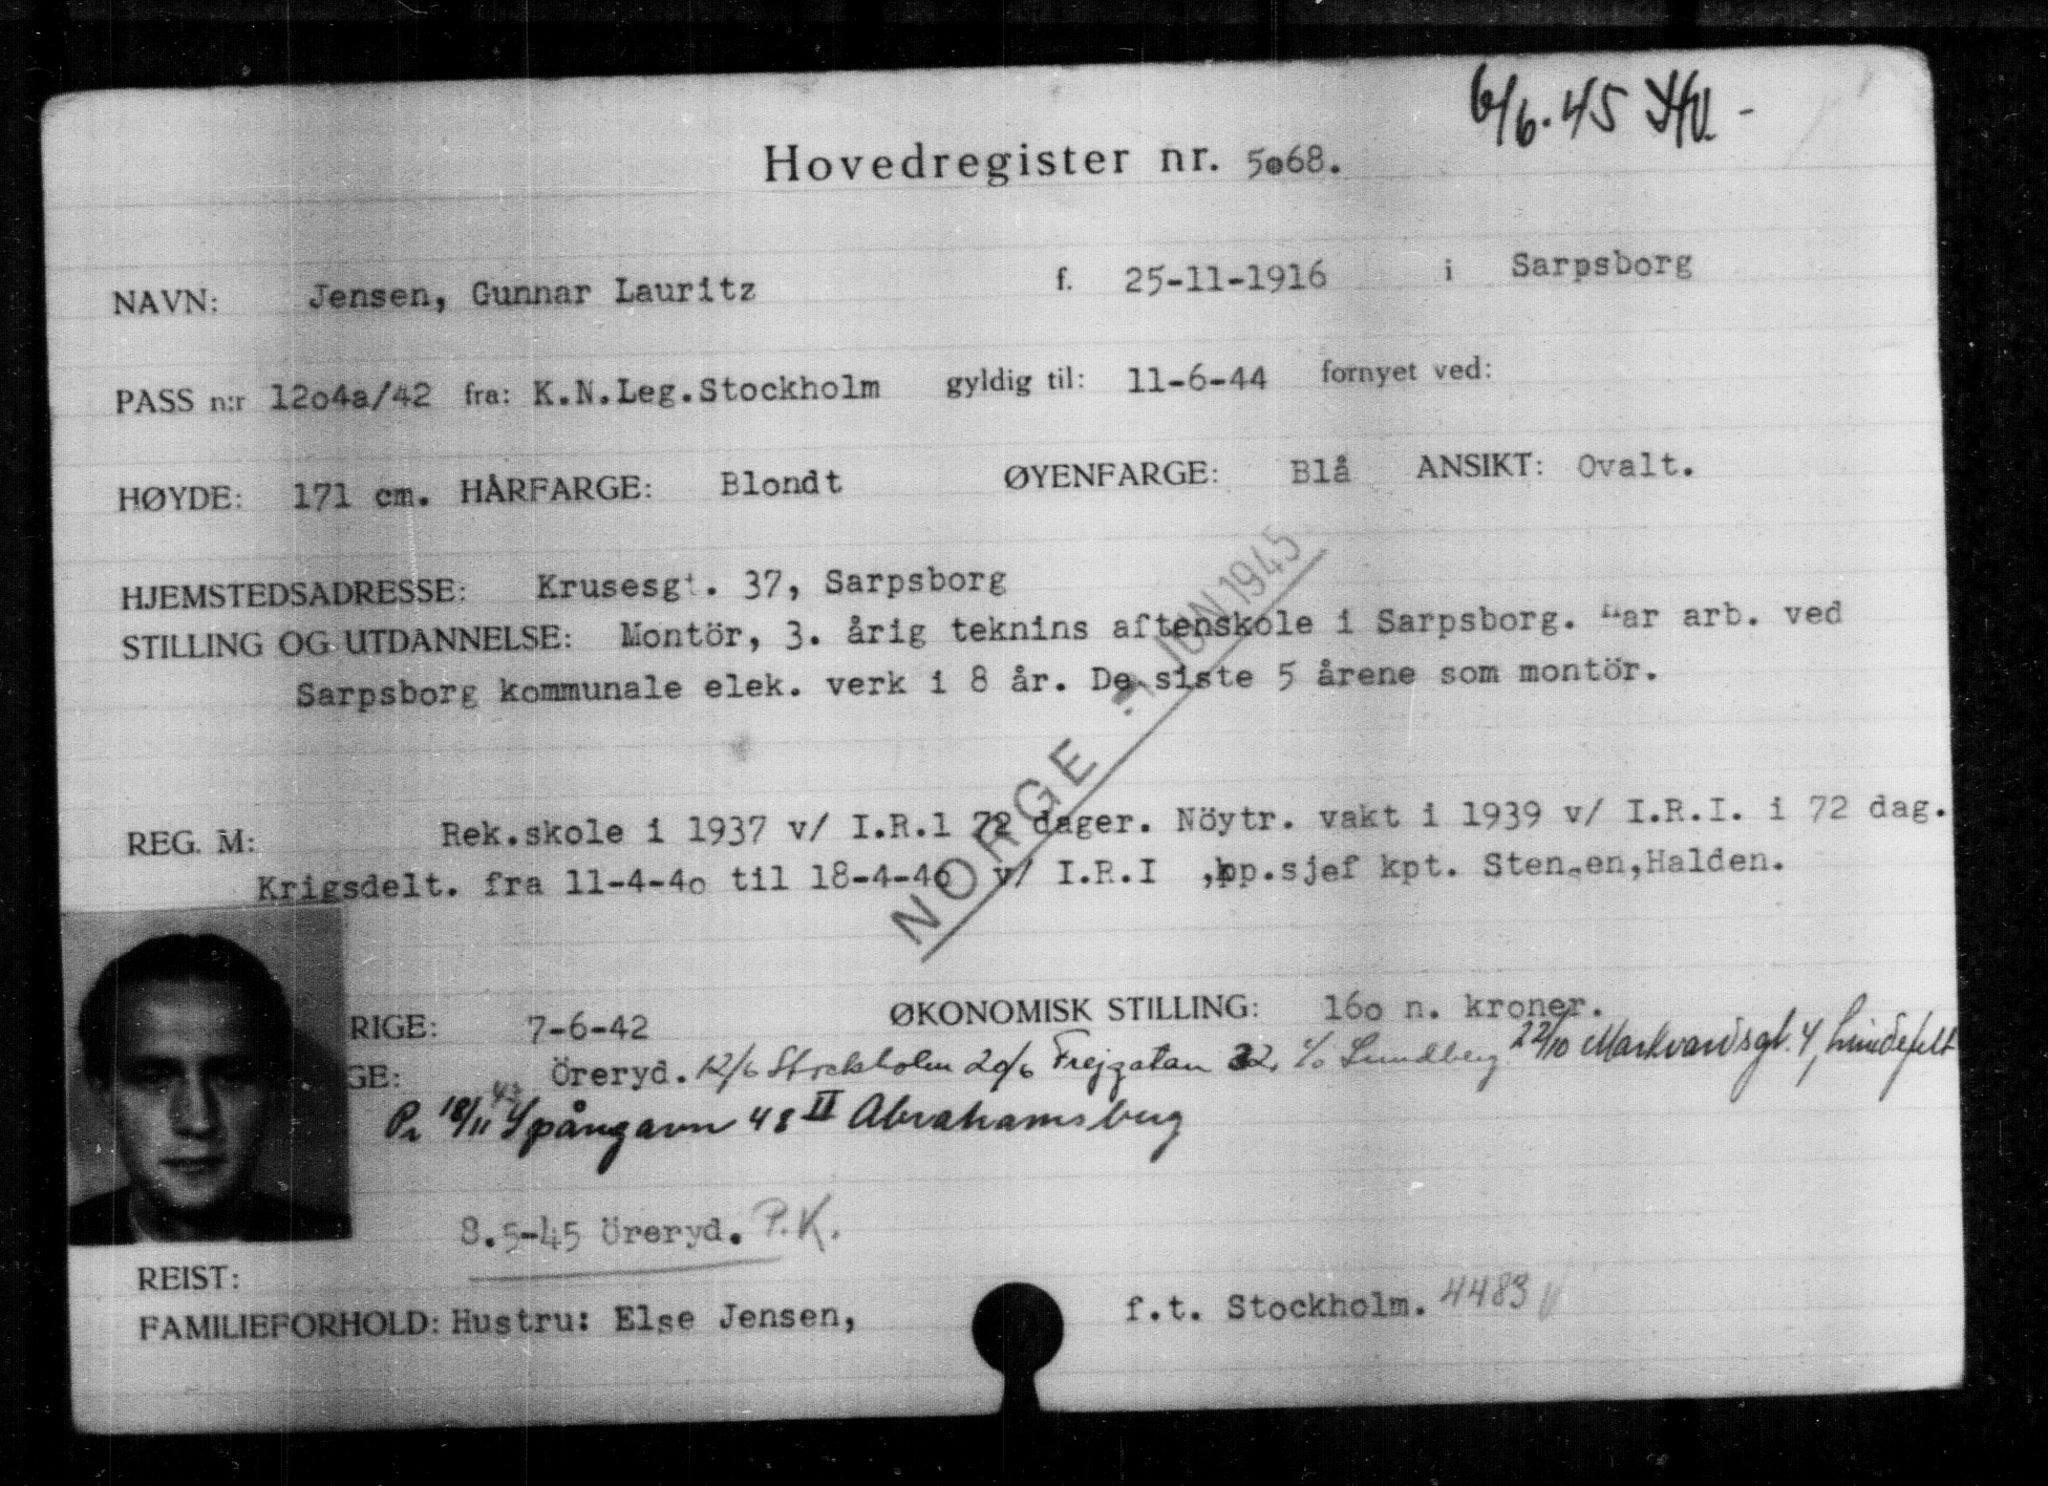 6/6.45
Hovedregister nr. 5068.
NAVN: Jensen, Gunnar Lauritz f. 25-11-1916 i Sarpsborg
PASS n:r 12o4a/42 fra: K.N.Leg.Stockholm gyldig til: 11-6-44 fornyet ved:
HØYDE: 171 cm. HÅRFARGE: Blondt ØYENFARGE: Blå ANSIKT: Ovalt.
HJEMSTEDSADRESSE: Krusesgt. 37, Sarpsborg
STILLING OG UTDANNELSE: Montör, 3. årig teknins aftenskole i Sarpsborg. Har arb. ved
Sarpsborg kommunale elek. verk i 8 år. De siste 5 årene som montör.
NORGE JUN 1945
REG. M: Rek.skole i 1937 v/ I.R.1 72 dager. Nöytr. vakt i 1939 v/ I.R.I. i 72 dag.
Krigsdelt. fra 11-4-4o til 18-4-4o v/ I.R.I ,kp.sjef kpt. Stensen,Halden.
RIGE: 7-6-42 ØKONOMISK STILLING: 16o n. kroner.
GE: Öreryd. 12/6 Stockholm 20/6 Frejgatan 32, c/o Sundberg 22/10 Markvardsgt. 4, Lindefelt
Pr 18/11 43 Spångavn 48 II Abrahamsberg
8.5-45 Öreryd. P.K.
REIST:
FAMILIEFORHOLD: Hustru: Else Jensen, f.t. Stockholm. 4483